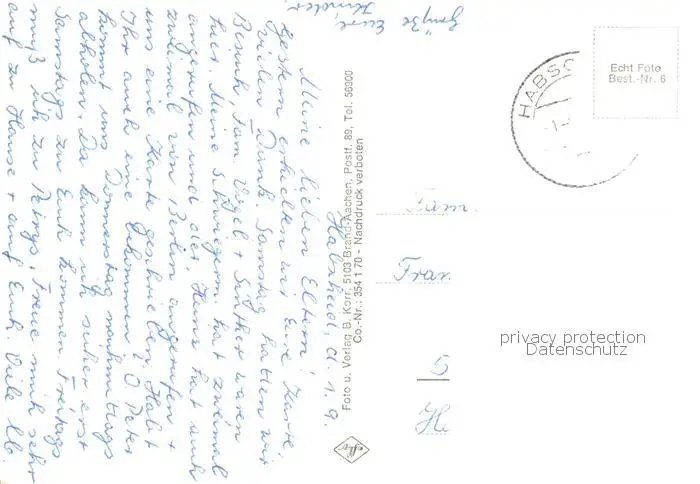 Habscheid, d. 1.9.
Meine lieben Eltern!
Gestern erhielten wir Eure Karte,
vielen Dank. Samstag hatten wir
Besuch, Fam. Vogel + waren
hier. Meine Schwiegerm. hat zweimal
angerufen und der. Hans hat auch
zweimal von Berlin angerufen +
uns eine Karte geschrieben. Habt
Ihr auch eine bekommen? O Peter
kommt uns Donnerstag nachmittags
abholen. Da kann ich sicher erst
Samstags zu Euch kommen. Freitags
muß ich zu . Freue mich sehr
auf zu Hause + auf Euch. Viele lb.
Grüße Eure
Kinder
Foto u. Verlag B. Korr, 5103 Brand-Aachen, Postf. 89, Tel. 56900
Co.-Nr.: 354 1 70 - Nachdruck verboten
HABSC
Echt Foto
Best.-Nr. 6
Fam.
Fran
5
He
privacy protection
Datenschutz